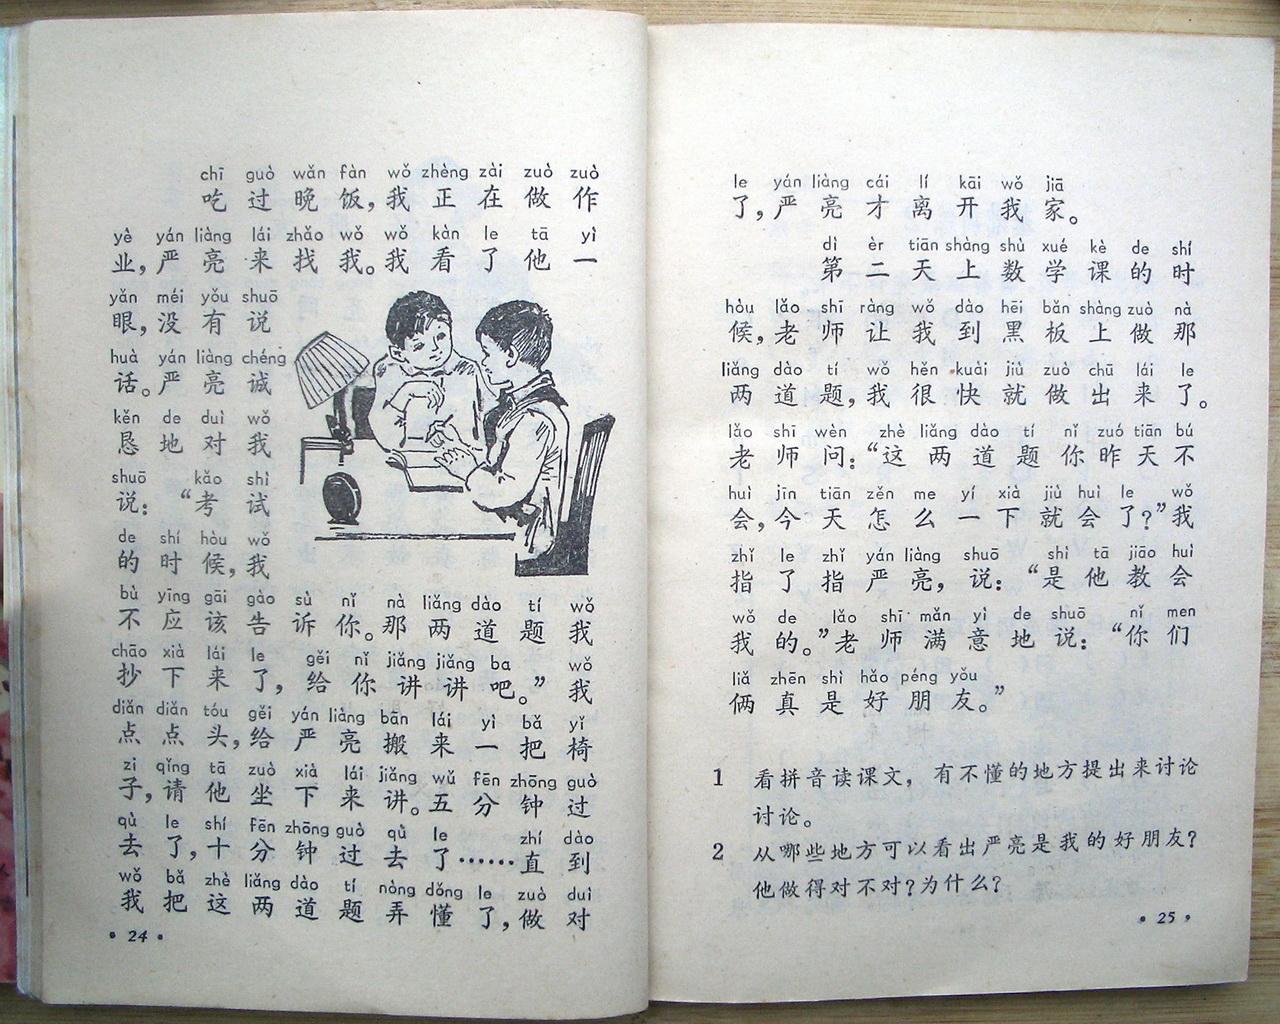 chī guò wǎn fàn wǒ zhèng zài zuò zuò
吃过晚饭，我正在做作
yè yán liàng lái zhǎo wǒ wǒ kàn le tā yì
业，严亮来找我。我看了他一
yǎn méi yǒu shuō
眼，没有说
huà yán liàng chéng
话。严亮诚
kěn de duì wǒ
恳地对我
shuō kǎo shì
说：“考试
de shí hòu wǒ
的时候，我
bù yīng gāi gào sù nǐ nà liǎng dào tí wǒ
不应该告诉你。那两道题我
chāo xià lái le gěi nǐ jiǎng jiǎng ba wǒ
抄下来了，给你讲讲吧。”我
diǎn diǎn tóu gěi yán liàng bān lái yì bǎ yǐ
点点头，给严亮搬来一把椅
zi qǐng tā zuò xià lái jiǎng wǔ fēn zhōng guò
子，请他坐下来讲。五分钟过
qù le shí fēn zhōng guò qù le zhí dào
去了，十分钟过去了……直到
wǒ bǎ zhè liǎng dào tí nòng dǒng le zuò duì
我把这两道题弄懂了，做对
• 24 •
le yán liàng cái lí kāi wǒ jiā
了，严亮才离开我家。
dì èr tiān shàng shù xué kè de shí
第二天上数学课的时
hòu lǎo shī ràng wǒ dào hēi bǎn shàng zuò nà
候，老师让我到黑板上做那
liǎng dào tí wǒ hěn kuài jiù zuò chū lái le
两道题，我很快就做出来了。
lǎo shī wèn zhè liǎng dào tí nǐ zuó tiān bú
老师问：“这两道题你昨天不
huì jīn tiān zěn me yí xià jiù huì le wǒ
会，今天怎么一下就会了？”我
zhǐ le zhǐ yán liàng shuō shì tā jiāo huì
指了指严亮，说：“是他教会
wǒ de lǎo shī mǎn yì de shuō nǐ men
我的。”老师满意地说：“你们
liǎ zhēn shì hǎo péng yǒu
俩真是好朋友。”
1 看拼音读课文，有不懂的地方提出来讨论
讨论。
2 从哪些地方可以看出严亮是我的好朋友？
他做得对不对？为什么？
• 25 •